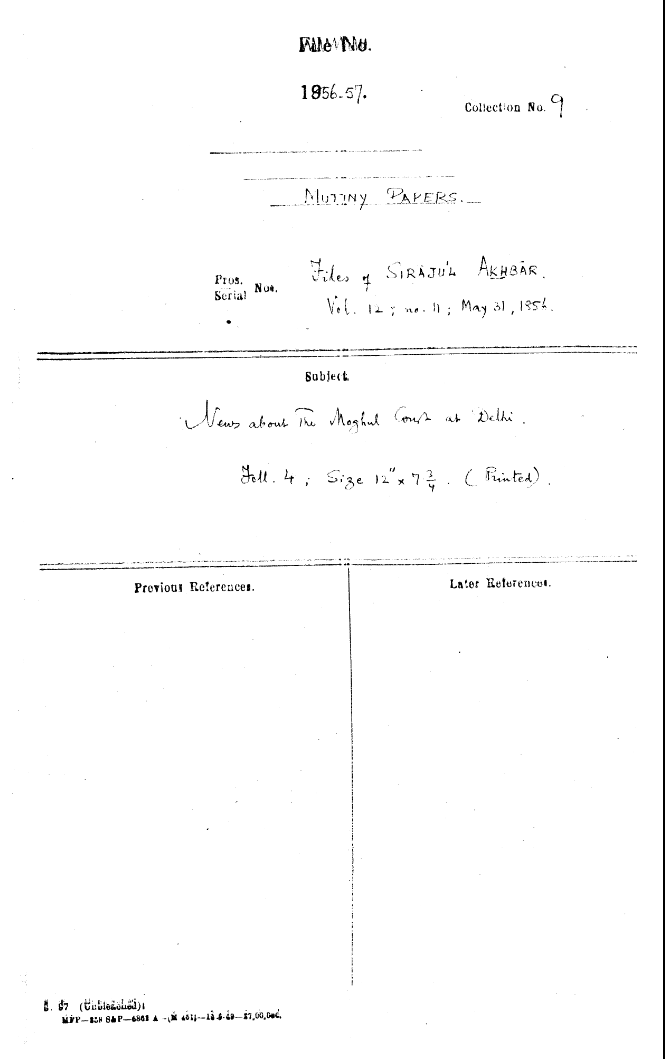 File No.
1856-57.
Collection No. 9
MUTINY PAPERS.
Pros.
Serial Nos.
Files of SIRĀJU'L AKHBĀR.
Vol. 12 ; no. 11 ; May 31, 1856.
Subject.
News about The Moghul Court at Delhi.
Foll. 4 ; Size 12" x 7 3/4 . ( Printed ) .
Previous References.
Later References.
S. 57 (Unbleached)
MFP—